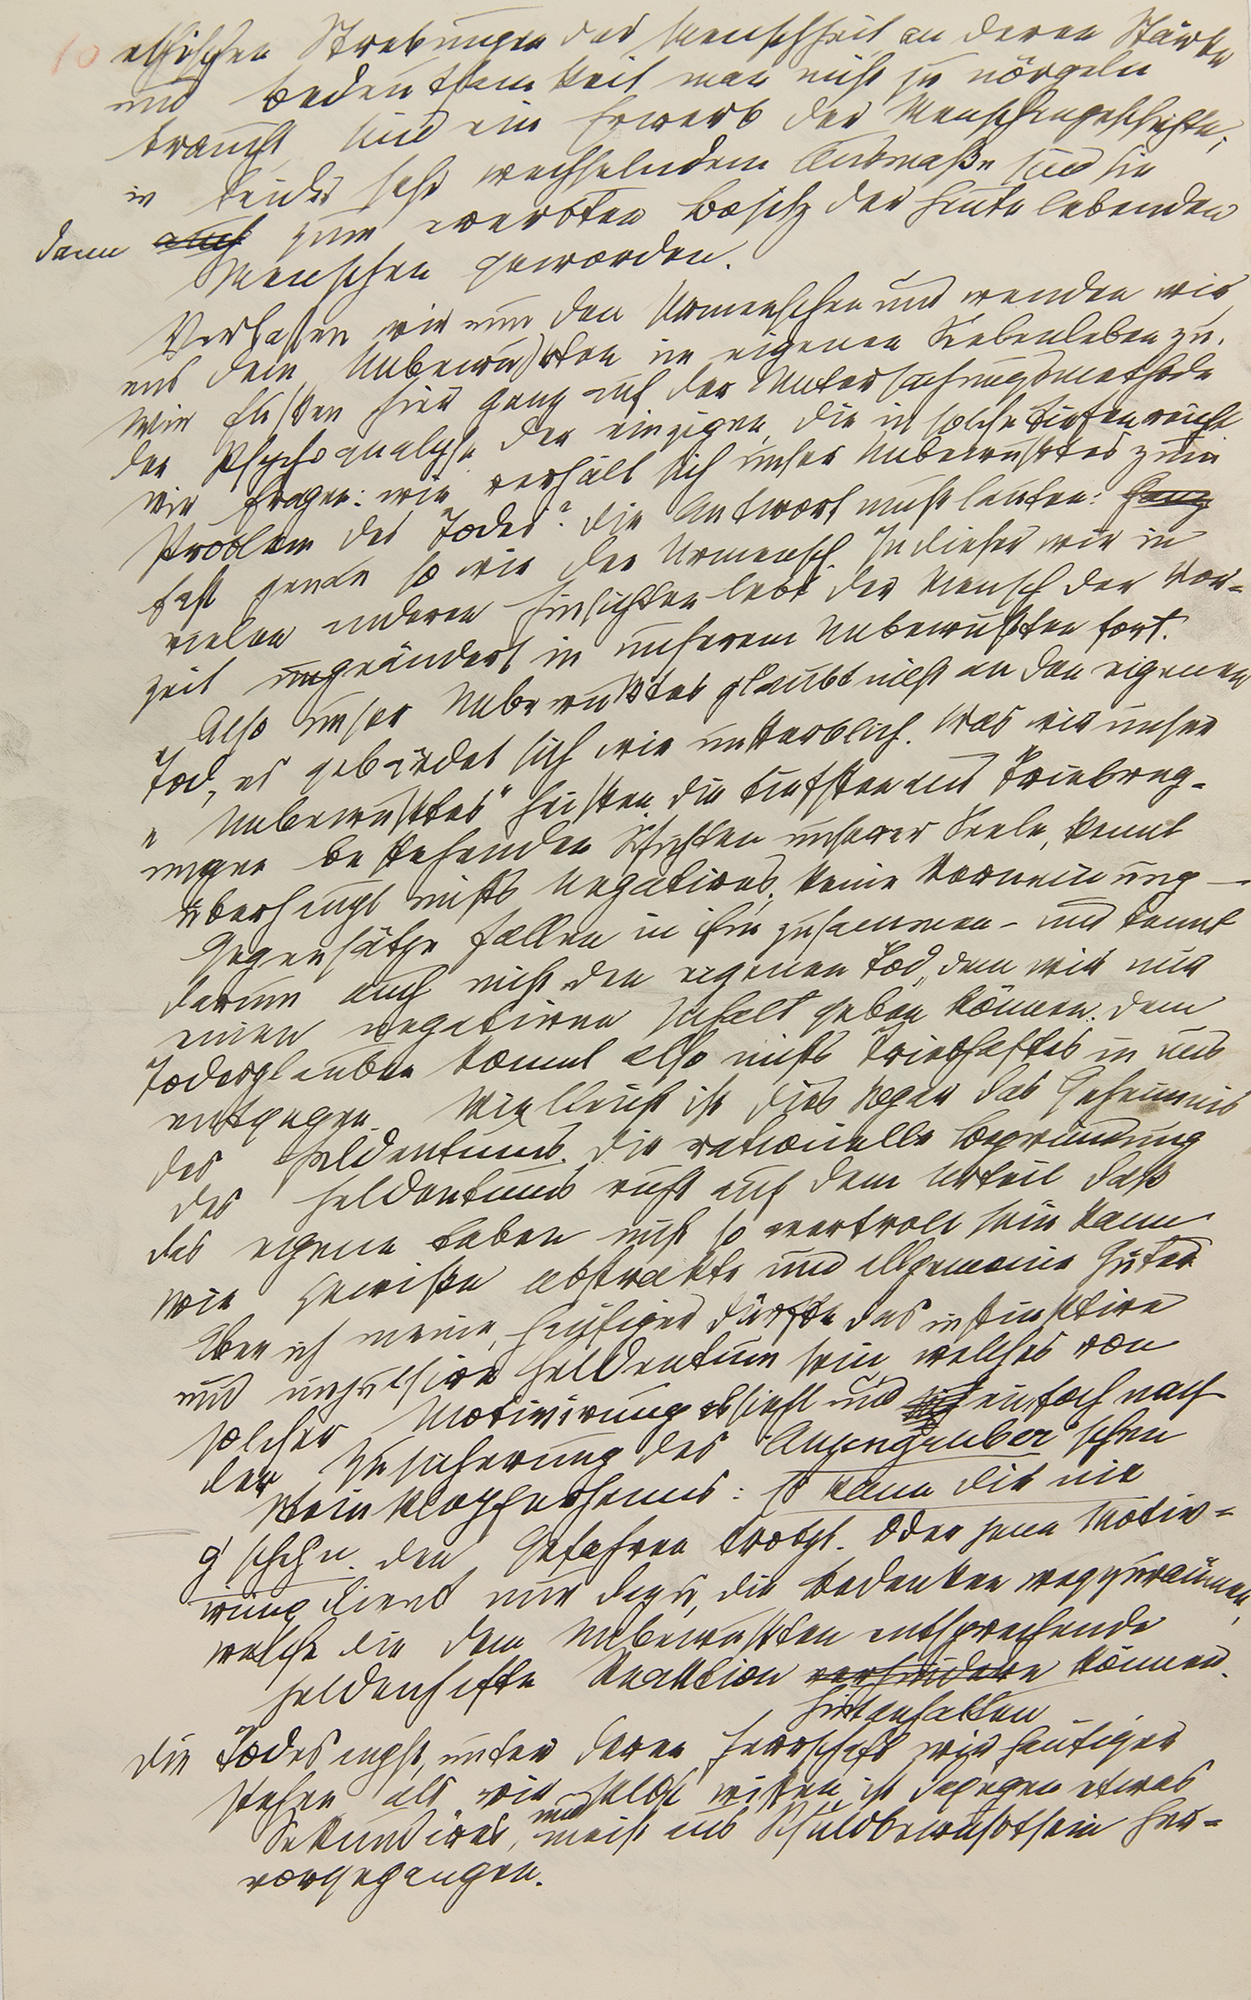 10 ethischen Strebungen der Menschheit, an deren Stärke
und Bedeutsamkeit man nicht zu nörgeln
braucht, sind ein Erwerb der Menschengeschichte;
in leider sehr wechselndem Ausmaße sind sie
dann auch zum ererbten Besitz der heute lebenden
Menschen geworden.
Verlassen wir nun den Urmenschen und wenden wir
uns dem Unbewußten im eigenen Seelenleben zu.
Wir fußen hier ganz auf der Untersuchungsmethode
der Psychoanalyse, der einzigen, die in solche Tiefen reicht
Wir fragen: wie verhält sich unser Unbewußtes zum
Problem des Todes? Die Antwort muß lauten: Ganz
fast genau so wie der Urmensch. In dieser wie in
vielen anderen Hinsichten lebt der Mensch der Vor-
zeit ungeändert in unserem Unbewußten fort.
Also unser Unbewußtes glaubt nicht an den eigenen
Tod, es gebärdet sich wie unsterblich. Was wir unser
„Unbewußtes" heißen, die tiefsten aus Triebreg-
ungen bestehenden Schichten unserer Seele, kennt
überhaupt nichts Negatives, keine Verneinung —
Gegensätze fallen in ihm zusammen – und kennt
darum auch nicht den eigenen Tod, dem wir nur
einen negativen Inhalt geben können. Dem
Todesglauben kommt also nichts Triebhaftes in uns
entgegen. Vielleicht ist dies sogar das Geheimnis
des Heldentums. Die rationelle Begründung
des Heldentums ruht auf dem Urteil, daß
das eigene Leben nicht so wertvoll sein kann
wie gewisse abstrakte und allgemeine Güter
Aber ich meine, häufiger dürfte das instinktive
und impulsive Heldentum sein, welches von
solcher Motivirung absieht und einfach nach
der Zusicherung des Anzengruber'schen
Steinklopferhanns: Es kann dir nix
g'schehn, den Gefahren trotzt. Oder jene Motiv-
irung dient nur dazu, die Bedenken wegzuräumen,
welche die dem Unbewußten entsprechende
heldenhafte Reaktion verhindern können.
hintanhalten
Die Todesangst, unter deren Herrschaft wir häufiger
stehen als wir selbst wissen, ist dagegen etwas
Sekundäres, und
meist aus Schuldbewußtsein her-
vorgegangen.